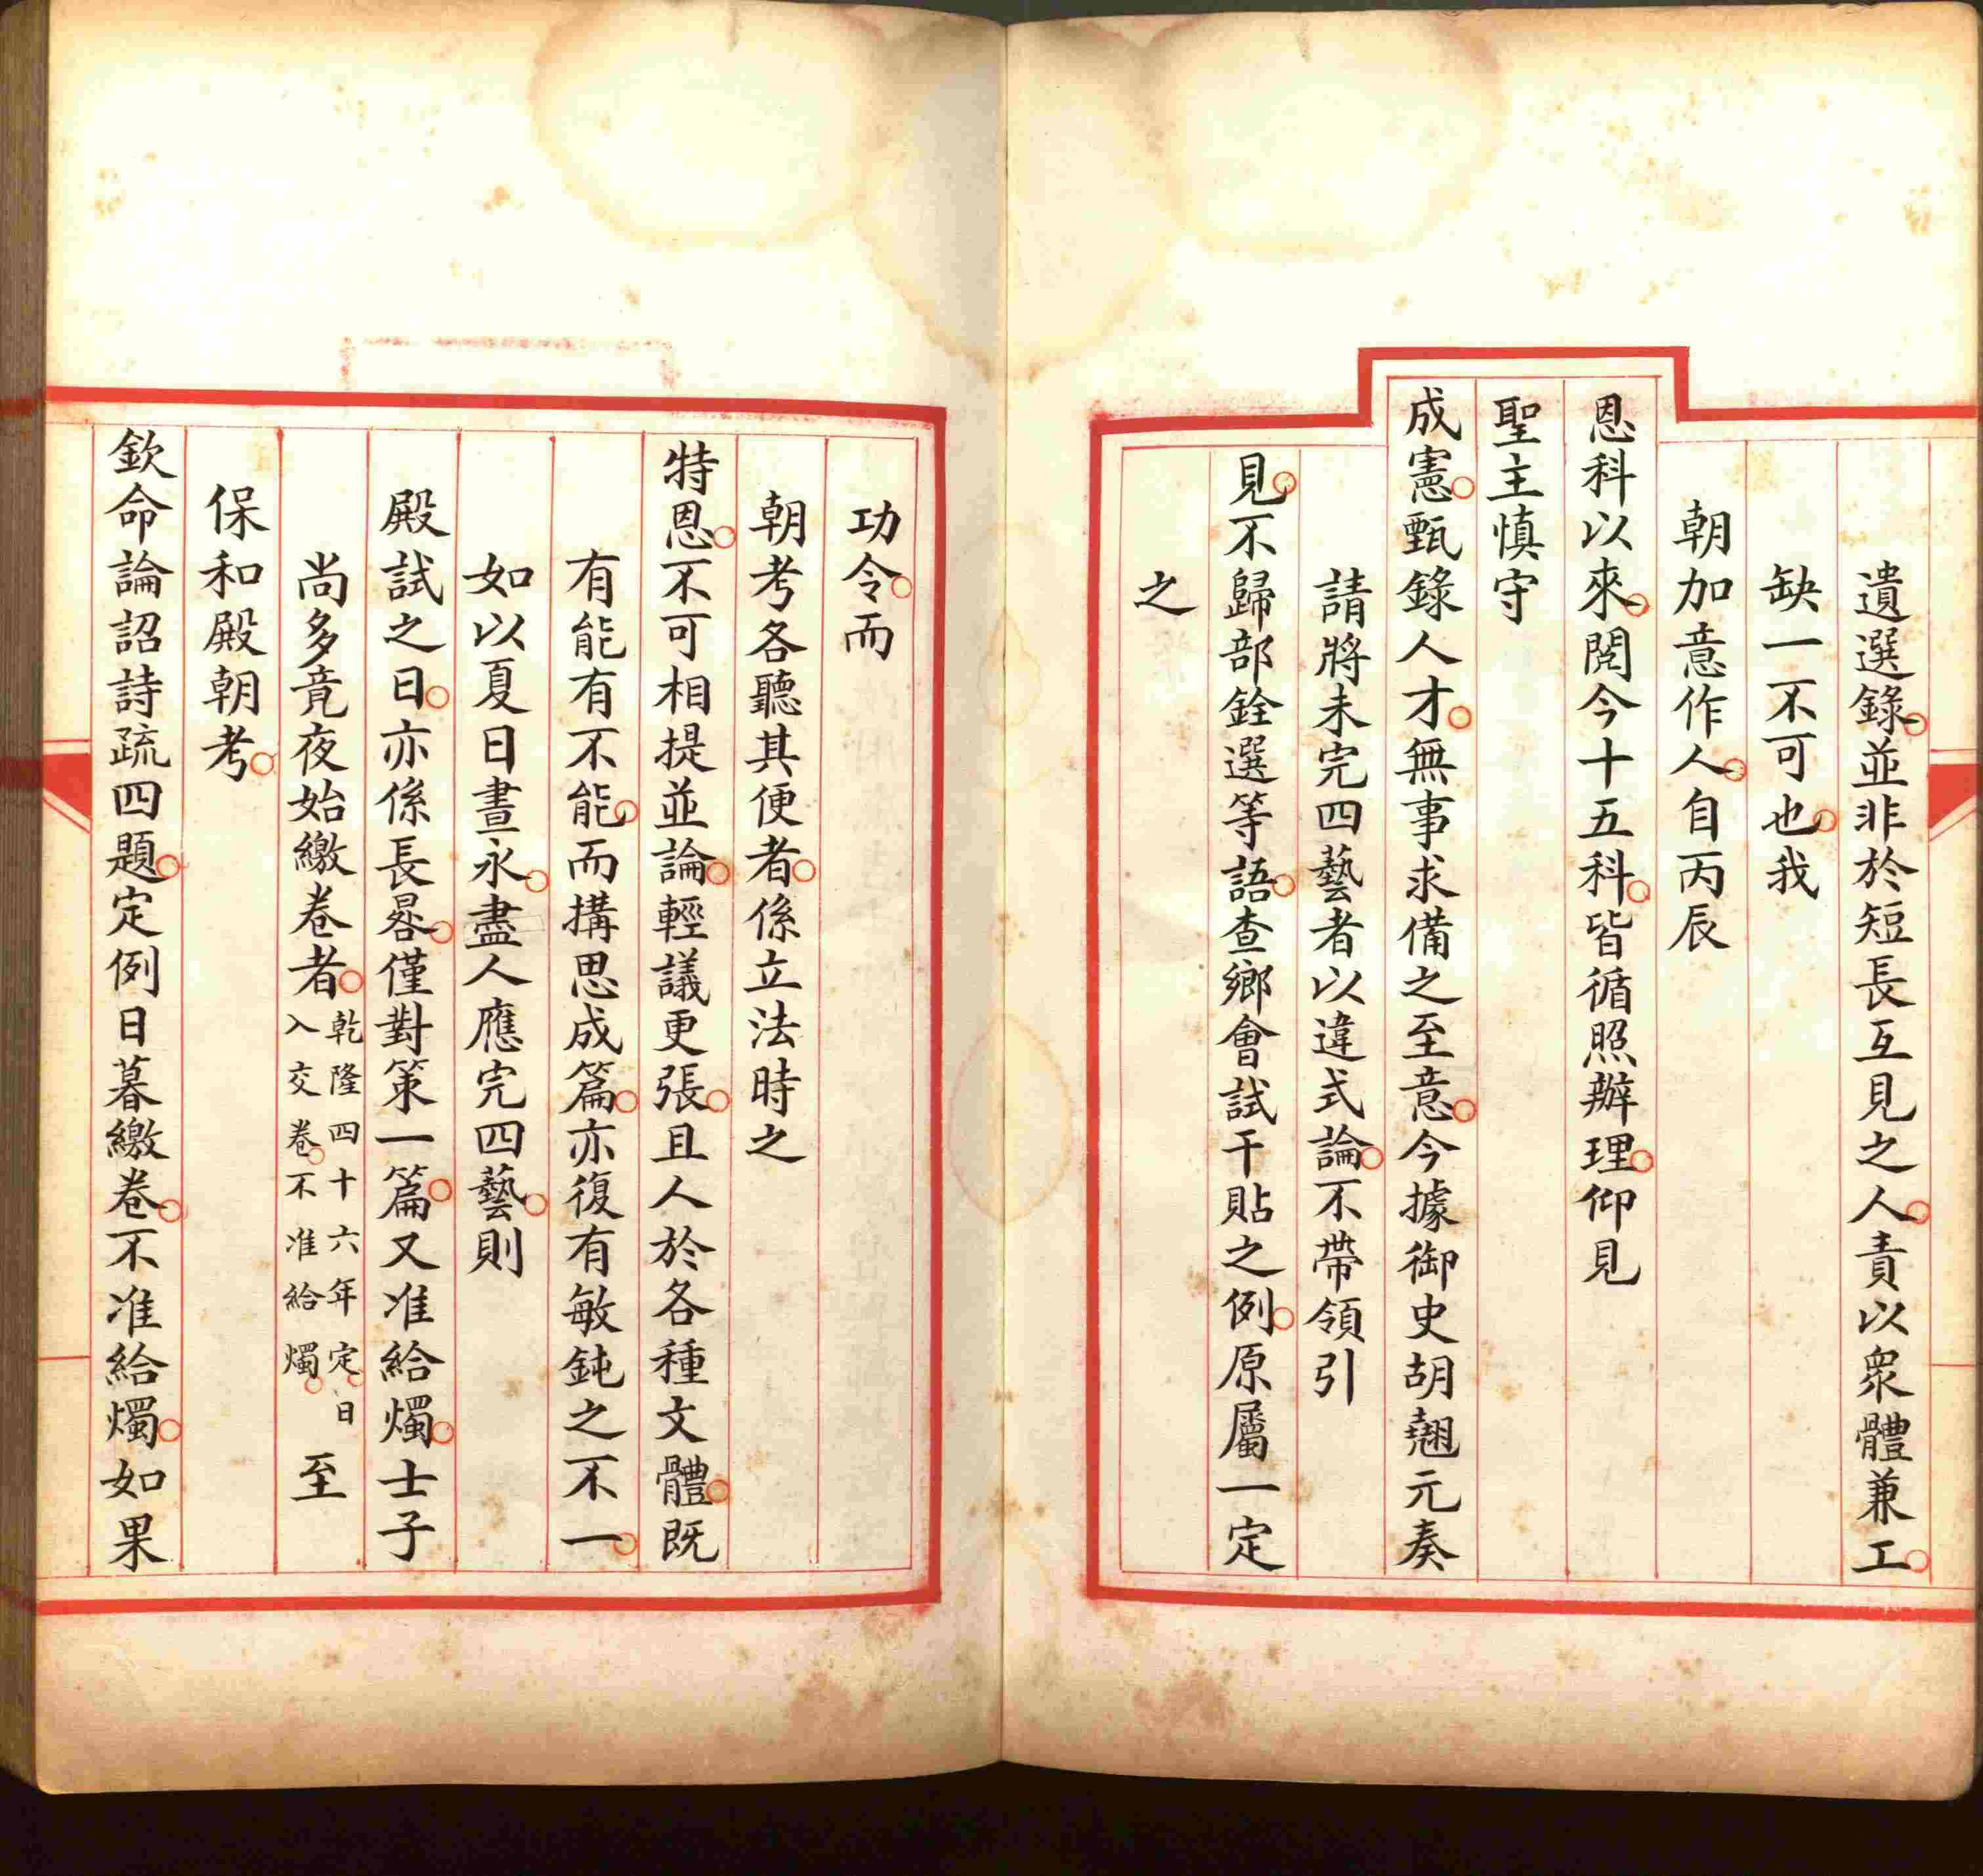 遺選錄並非於短長互見之人責以衆體兼工
缺一不可也我
朝加意作人自丙辰
恩科以來閱今十五科皆循照辦理仰見
聖主慎守
成憲甄錄人才無事求備之至意今據御史胡翹元奏
請將未完四藝者以違式論不帶領引
見不歸部銓選等語查鄉會試干貼之例原屬一定
之
功令而
朝考各聽其便者係立法時之
特恩不可相提並論輕議更張且人於各種文體既
有能有不能而搆思成篇亦復有敏鈍之不一
如以夏日晝永盡人應完四藝則
殿試之日亦係長晷僅對策一篇又准給燭士子
尚多竟夜始繳卷者乾隆四十六年定日入交卷不准給燭至
保和殿朝考
欽命論詔詩疏四題定例日暮繳卷不准給燭如果